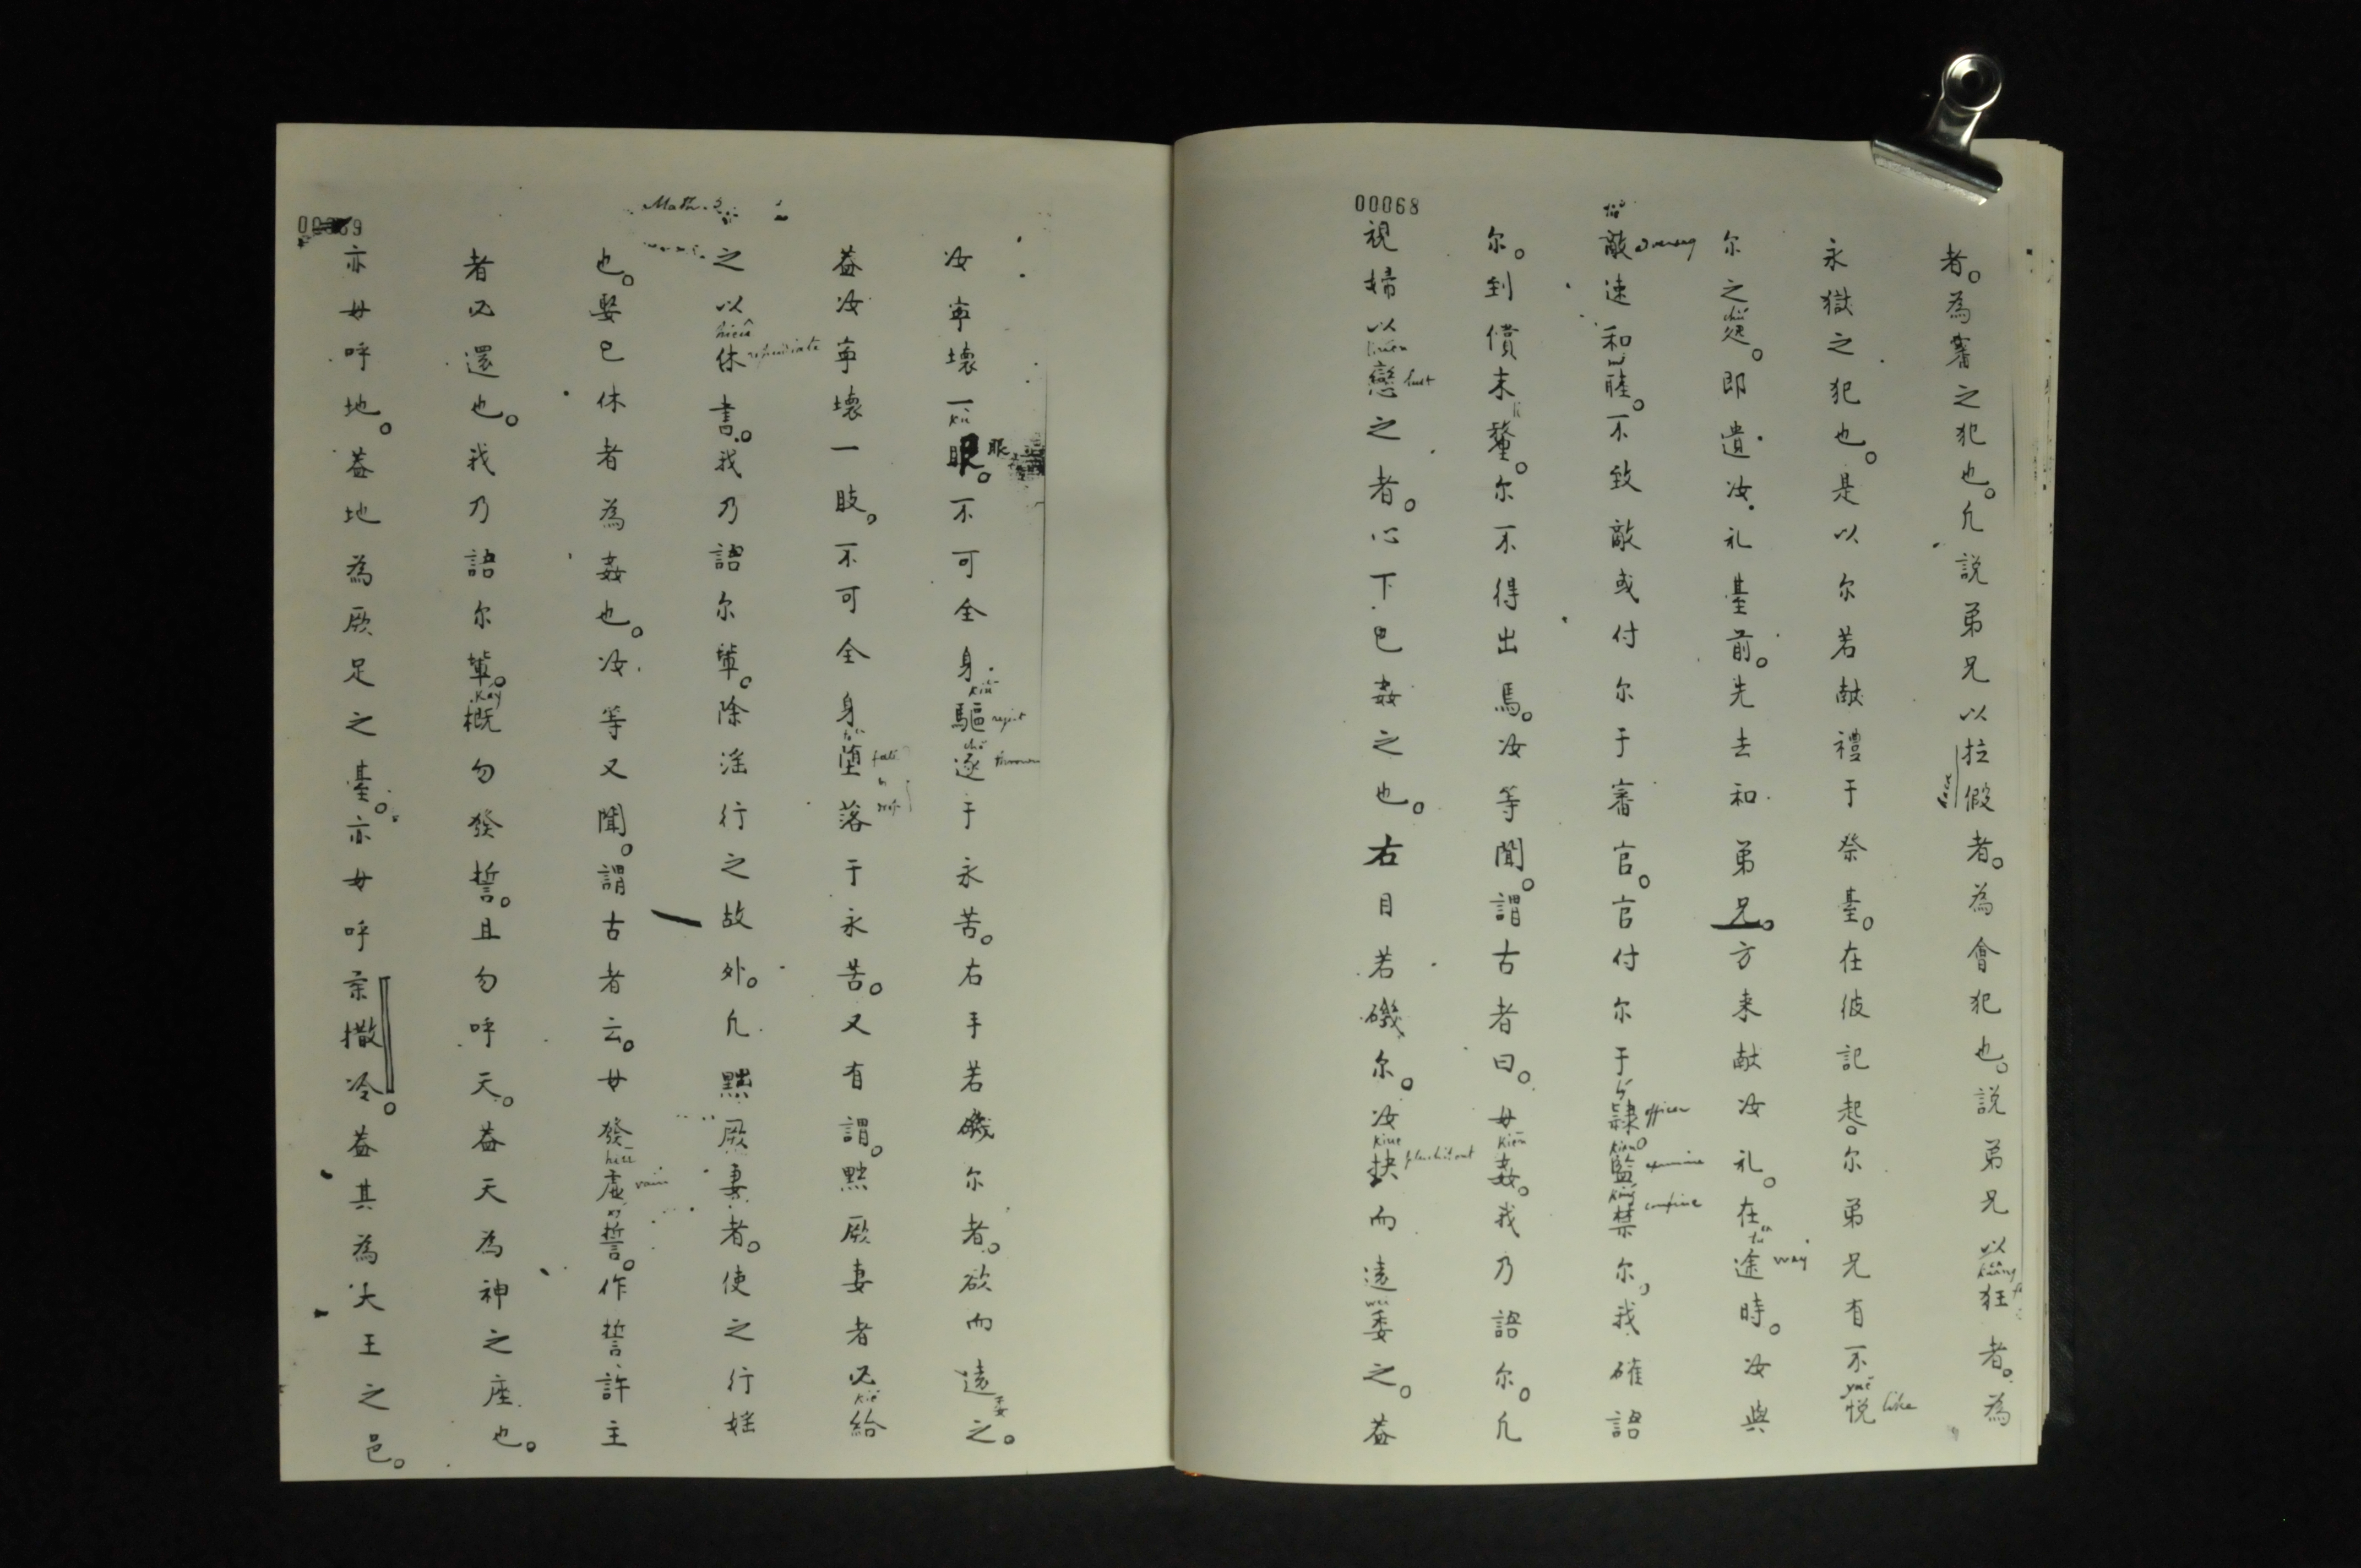 00068
者。為審之犯也。凢説弟兄以拉假者。為會犯也。説弟兄以狂者。為
永獄之犯也。是以尔若献禮于祭臺。在彼記起。尔弟兄有不悦
尔之。即遺汝礼臺前。先去和弟兄。方来献汝礼。在途時。汝與
敵速和睦。不致敵或付尔于審官。官付尔于隸監禁尔。我確語
尔。到償末釐。尔不得出焉。汝等聞。謂古者曰。毋姦。我乃語尔。凢
視婦以戀之者。心下已姦之也。右目若磯尔。汝抉而遠委之。葢
kaang
yuē like
tu way
officer
examine
confine
kien
lust
kiue
Math. 5
汝寕壊一眼。不可全身驅逐于永苦。右手若磯尔者。砍而遠委之。
葢汝寕壊一肢。不可全身堕落于永苦。又有謂。黙厥妻者必給
之以休書。我乃語尔輩。除淫行之故外。凢黙厥妻者。使之行婬
也。娶已休者為姦也。汝等又聞。謂古者云。毋發虛誓。作誓許主
者必還也。我乃語尔輩。概勿發誓。且勿呼天。葢天為神之座也。
亦毋呼地。葢地為厥足之臺。亦毋呼柰撒冷。葢其為大王之邑。
眼
reject
repudiate
vain
kay